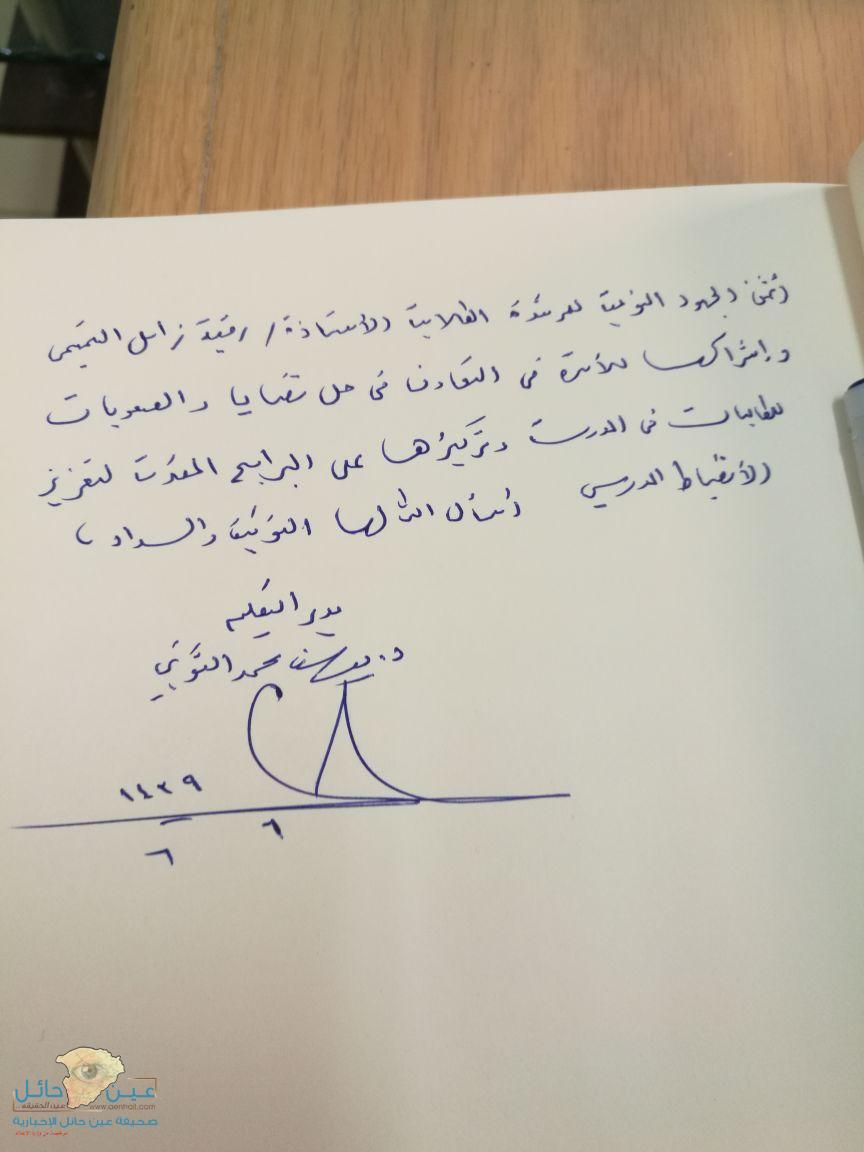 أثمن الجهود النوعية للمرشدة الطلابية الأستاذة/ رقية زامل التميمي
وإشراكها للأسرة في التعاون في حل قضايا والصعوبات
للطالبات في المدرسة وتركيزها على البرامج المعدة لتعزيز
الانضباط المدرسي أسأل الله لها التوفيق والسداد،
مدير التعليم
د. يوسف محمد الثويني
١٤٣٩
٦
٦
عين حائل
عين الحقيقة
www.aenhail.com
صحيفة عين حائل الإخبارية